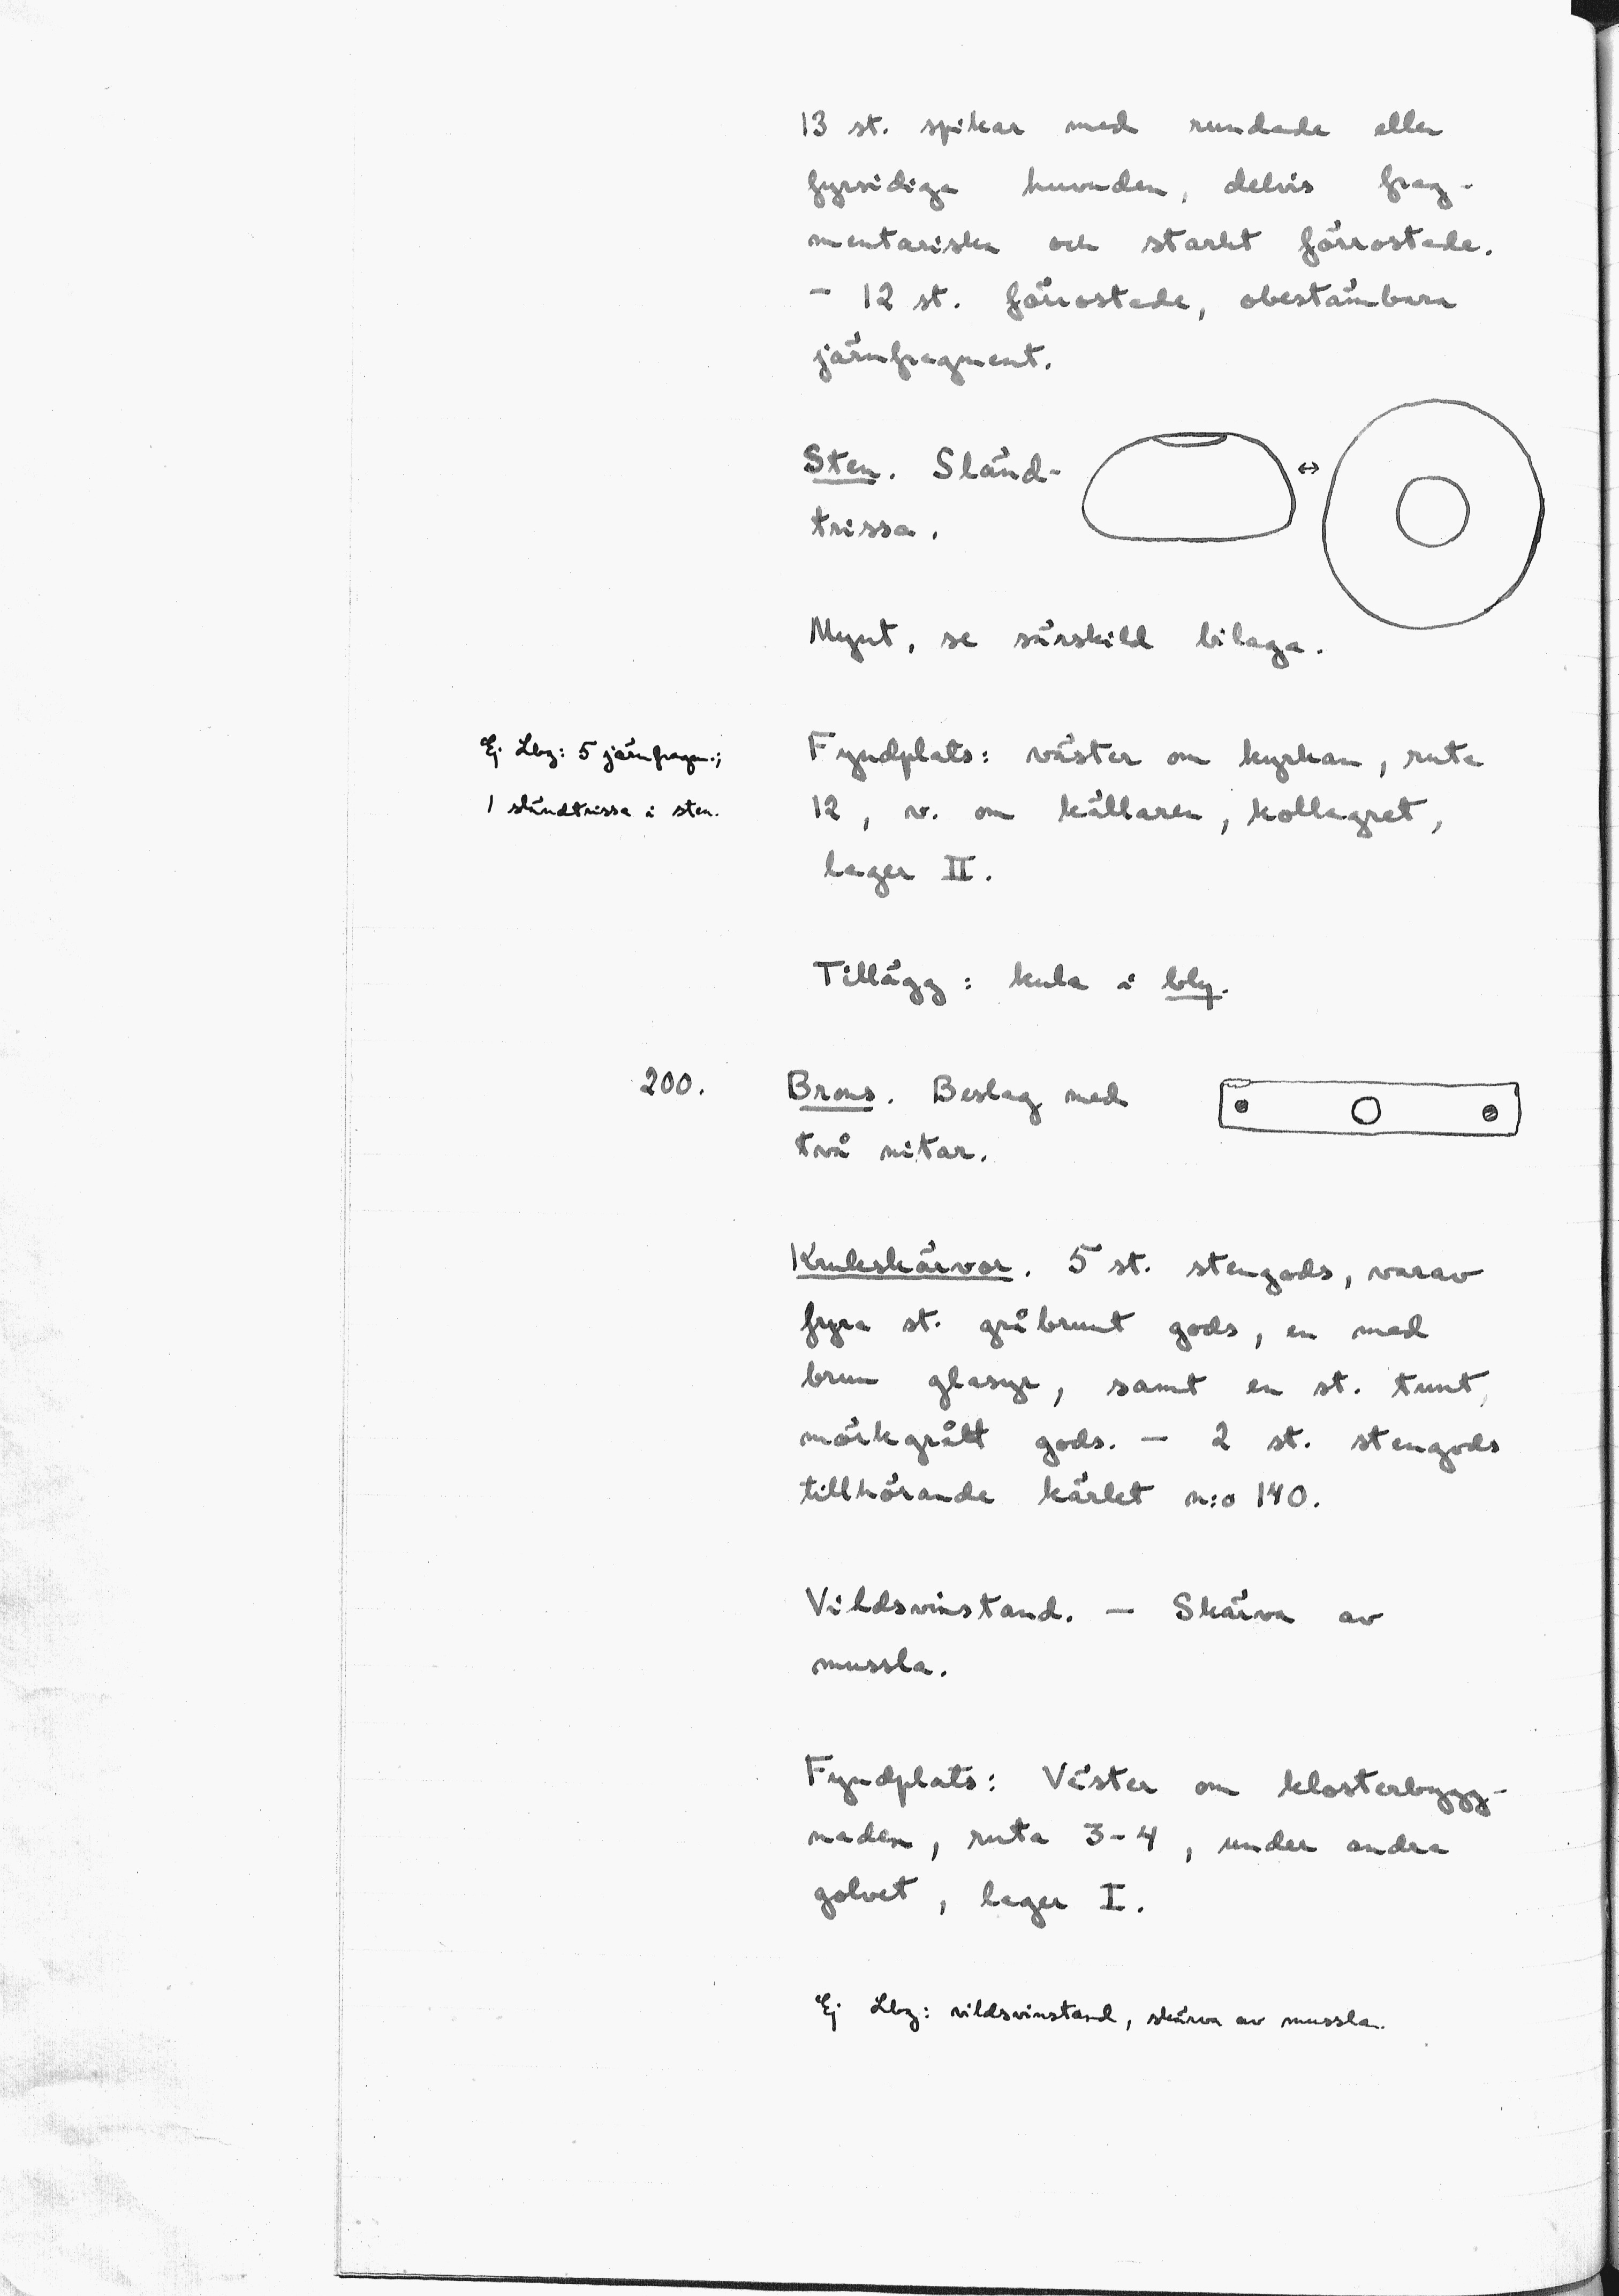 13 st. spikar med rundade eller
fyrsidiga huvuden, delvis frag-
mentariska och starkt förrostade.
— 12 st. förrostade, obestämbara
järnfragment.
Sten. Sländ-
trissa.
Mynt, se särskild bilaga.
Ej Lbg: 5 järnfragm.;
1 sländtrissa i sten.
Fyndplats: väster om kyrkan, ruta
12, v. om källaren, kollagret,
lager II.
Tillägg: kula i bly.
200.
Brons. Beslag med
två nitar.
Krukskärvor. 5 st. stengods, varav
fyra st. gråbrunt gods, en med
brun glasyr, samt en st. tunt,
mörkgrått gods. — 2 st. stengods
tillhörande kärlet n:o 140.
Vildsvinstand. — Skärva av
mussla.
Fyndplats: Väster om klosterbygg-
naden, ruta 3-4, under andra
golvet, lager I.
Ej Lbg: vildsvinstand, skärva av mussla.